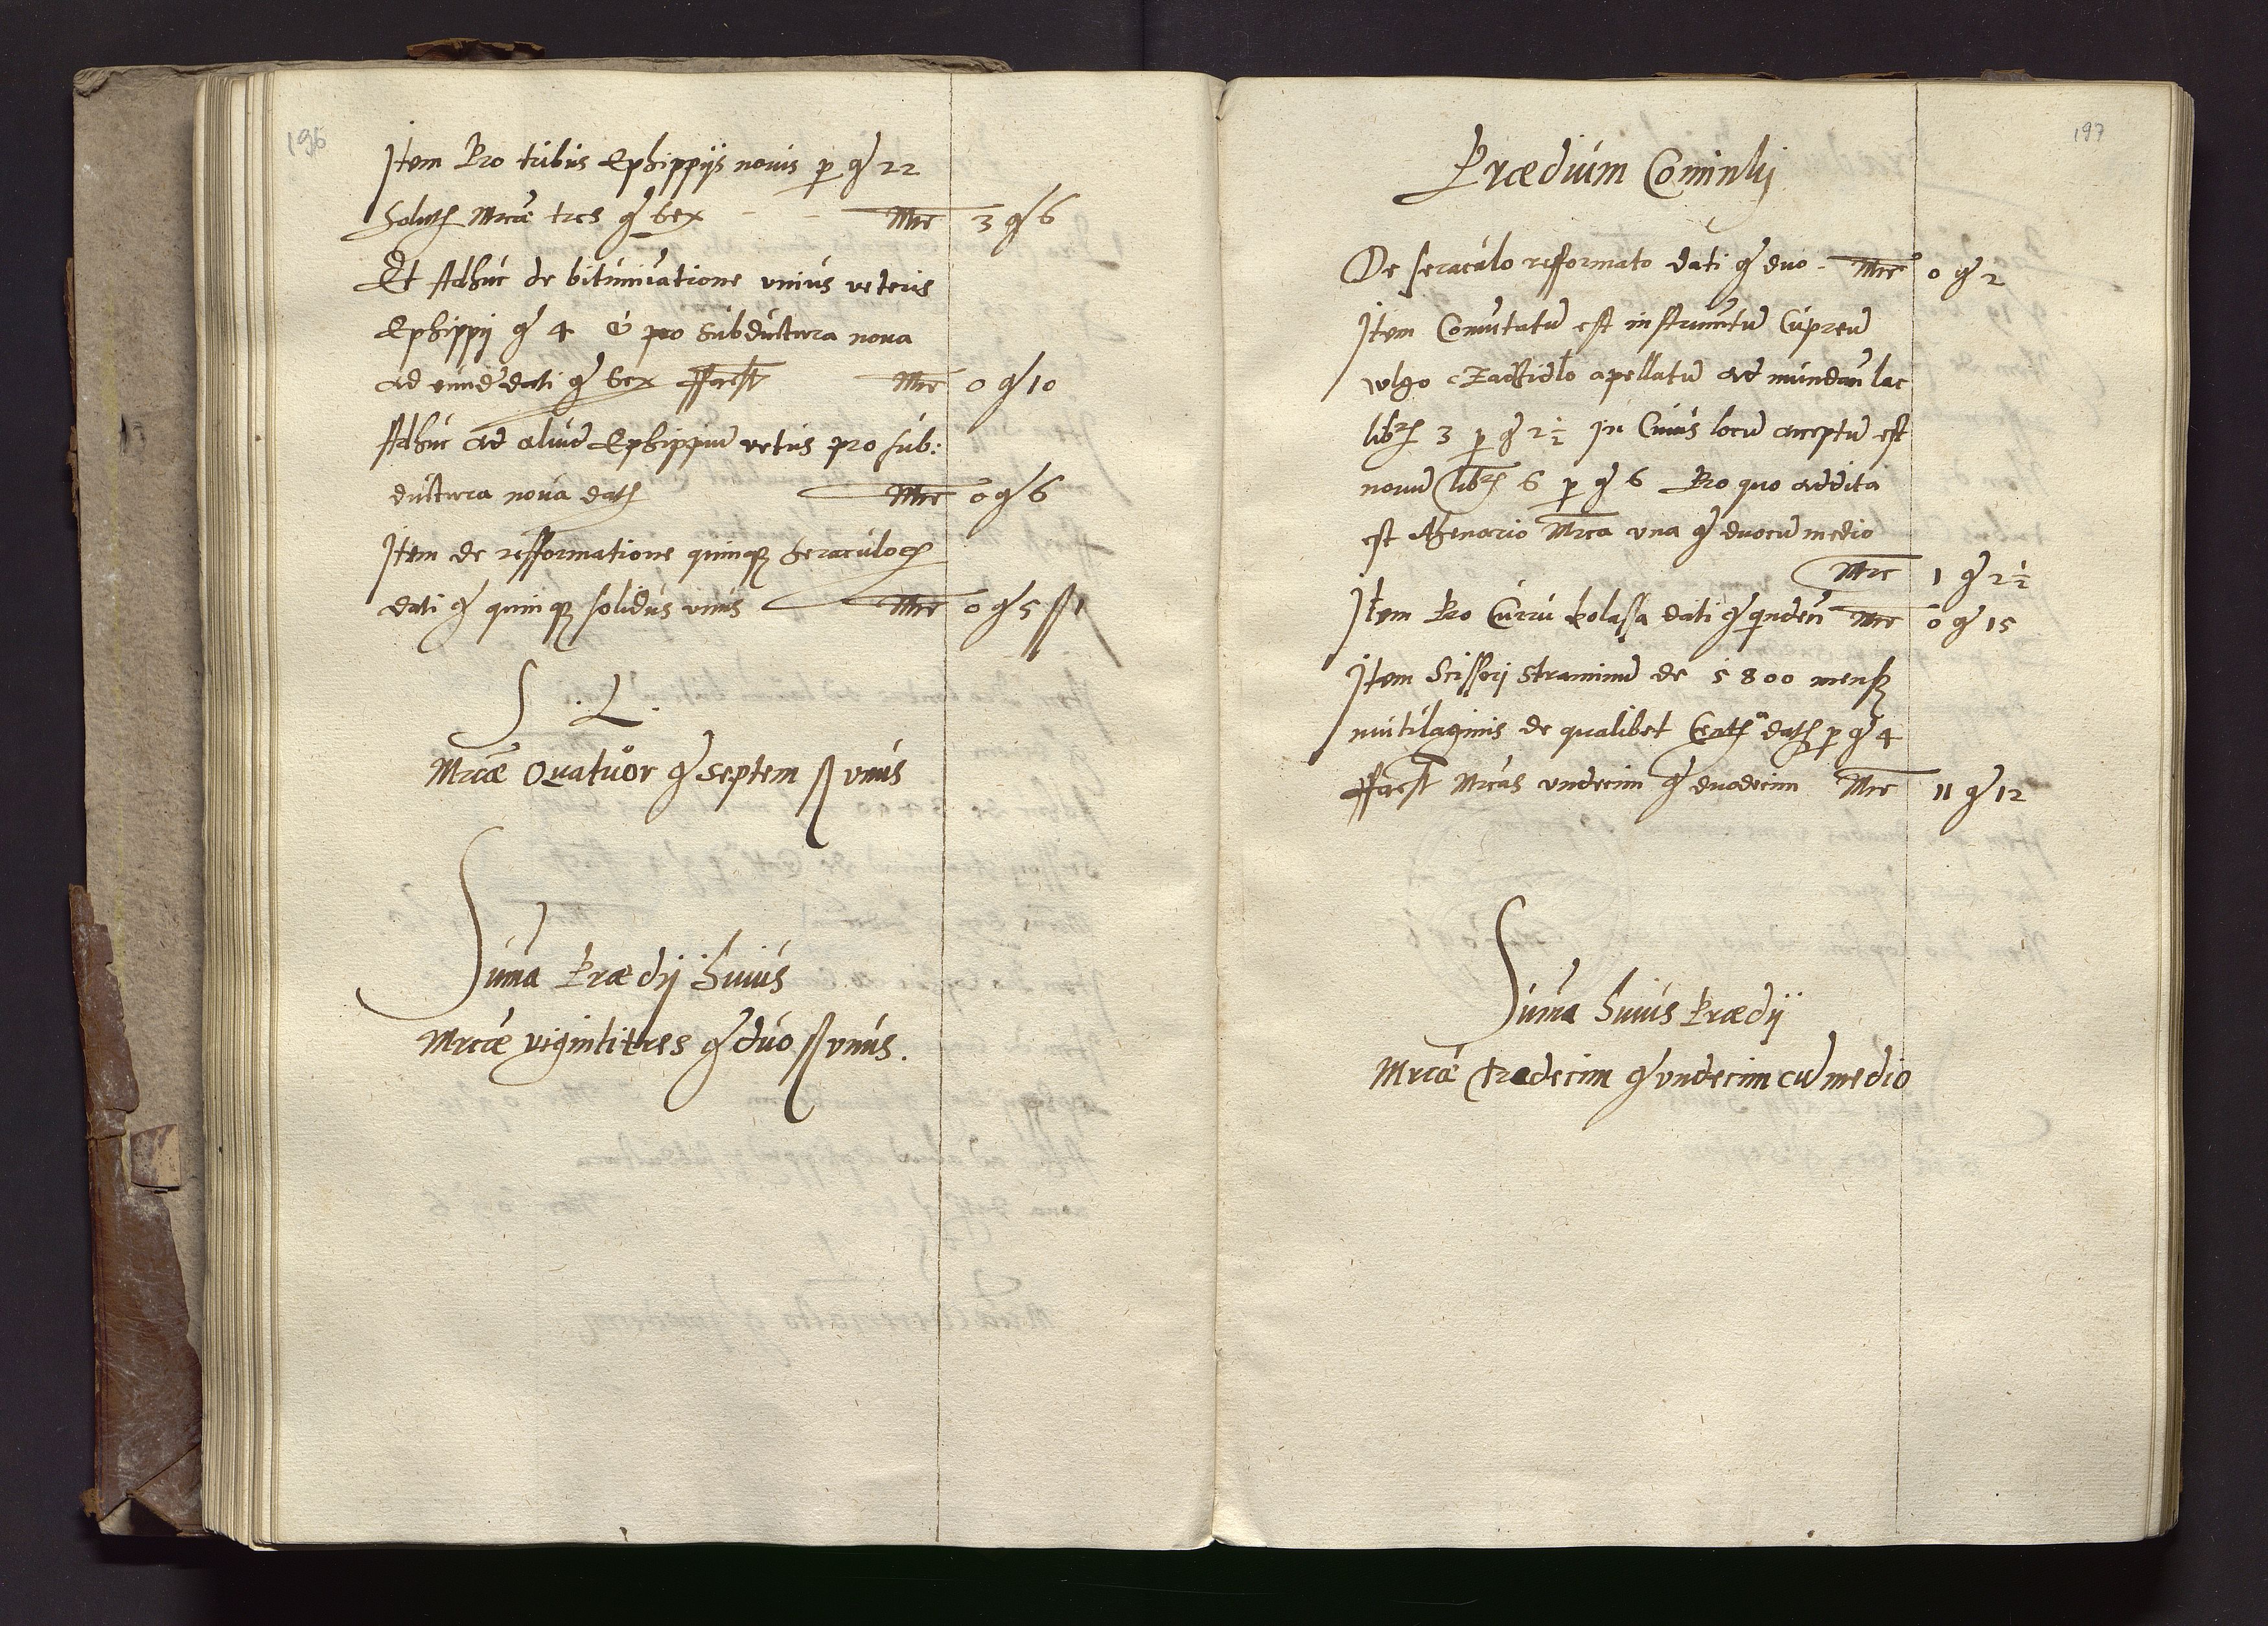 196
Item Pro tribus Ephippijs novis p gr 22
soluti Mrcæ tres gr sex - - Mrc 3 gr 6
Et Adhuc de bituminatione unius veteris
Ephippij gr 4 & pro subductura nova
ad eund dati gr sex ffacit Mrc 0 gr 10
Adhuc ad aliud Ephippiu vetus pro sub:
ductura nova dati Mrc 0 gr 6
Item de refformatione quinq seraculoru
dati gr quinq solidus unus Mrc 0 gr 5 ß 1
S . L .
Mrcæ Quatuor gr septem ß unus
Suma Prædij huius
Mrcæ vigintitres gr duo ß unus.
197
Prædium
De seraculo refformato dati gr duo - Mrc 0 gr 2
Item Comutatu est instrumtu Cupreu
vulgo apellatu ad mundan lac
libr 3 p gr 2½ In Cuius locu acceptu est
novu libr 6 p gr 6 Pro quo addita
est Ahenario Mrca una gr duo cu medio
Mrc 1 gr 2½
Item Pro Curru kolassa dati gr quindeci Mrc 0 gr 15
Item Scissori straminu de 5800 mens
mutilaginis de qualibet Cent dati p gr 4
ffacit Mrcas undecim gr duodecim Mrc 11 gr 12
Suma huius Prædij
Mrcæ tredecim gr undecim cu medio